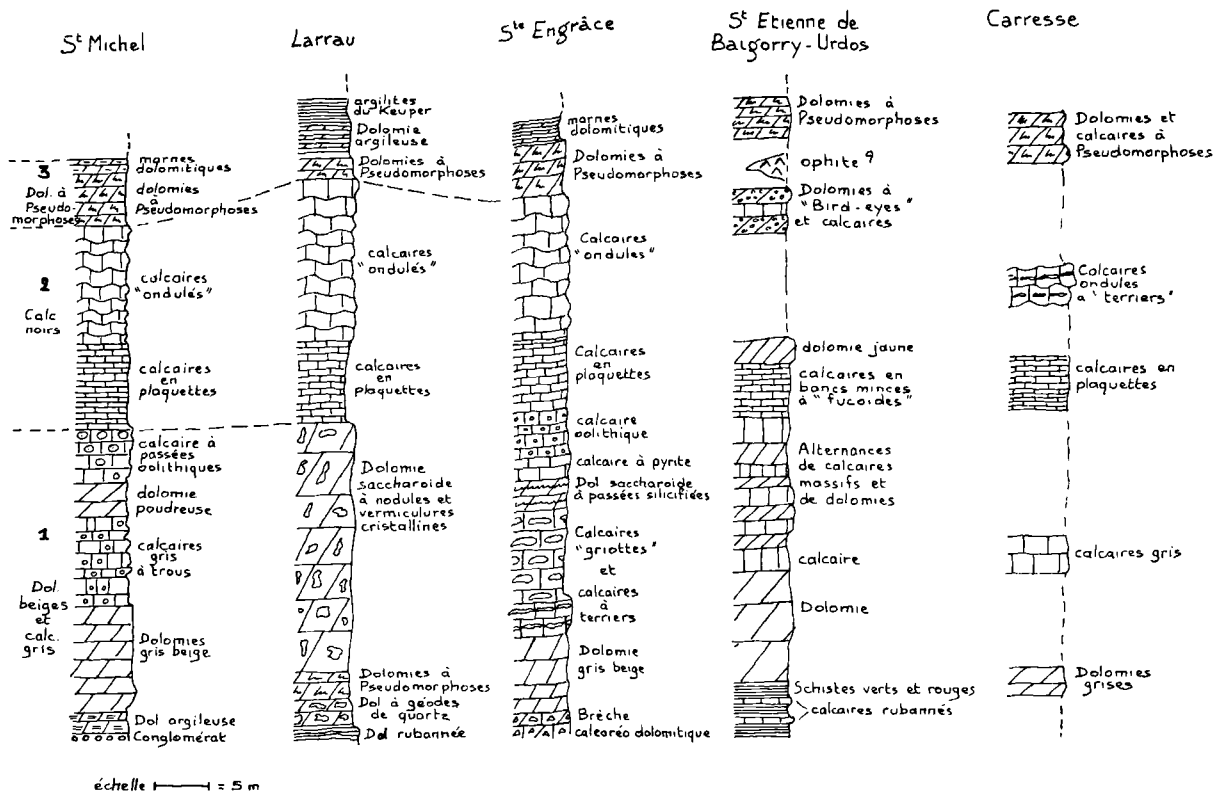 St Michel
3
Dol. à
Pseudo-
morphoses
2
Calc
noirs
1
Dol.
beiges
et
calc.
gris
marnes
dolomitiques
dolomies
à
Pseudomorphoses
calcaires
"ondulés"
calcaires
en
plaquettes
calcaire à
passées
oolithiques
dolomie
poudreuse
calcaires
gris
à trous
Dolomies
gris beige
Dol argileuse
Conglomérat
Larrau
argilites
du Keuper
Dolomie
argileuse
Dolomies à
Pseudomorphoses
calcaires
"ondulés"
calcaires
en
plaquettes
Dolomie
saccharoide
à nodules et
vermicules
cristallines
Dolomies à
Pseudomorphoses
Dol à géodes
de quartz
Dol rubannée
Ste Engrâce
marnes
dolomitiques
Dolomies à
Pseudomorphoses
Calcaires
"ondules"
Calcaires
en
plaquettes
calcaire
oolithique
calcaire à pyrite
Dol saccharoide
à passées silicifiées
Calcaires
"griottes"
et
calcaires
à
terriers
Dolomie
gris beige
Brèche
calcaréo dolomitique
St Etienne de
Baigorry-Urdos
Dolomies à
Pseudomorphoses
ophite ?
Dolomies à
"Bird-eyes"
et calcaires
dolomie jaune
calcaires en
bancs minces
à "fucoides"
Alternances
de calcaires
massifs et
de dolomies
calcaire
Dolomie
Schistes verts et rouges
calcaires rubannés
Carresse
Dolomies et
calcaires à
Pseudomorphoses
Calcaires
ondules
a "terriers"
calcaires en
plaquettes
calcaires gris
Dolomies
grises
échelle = 5 m